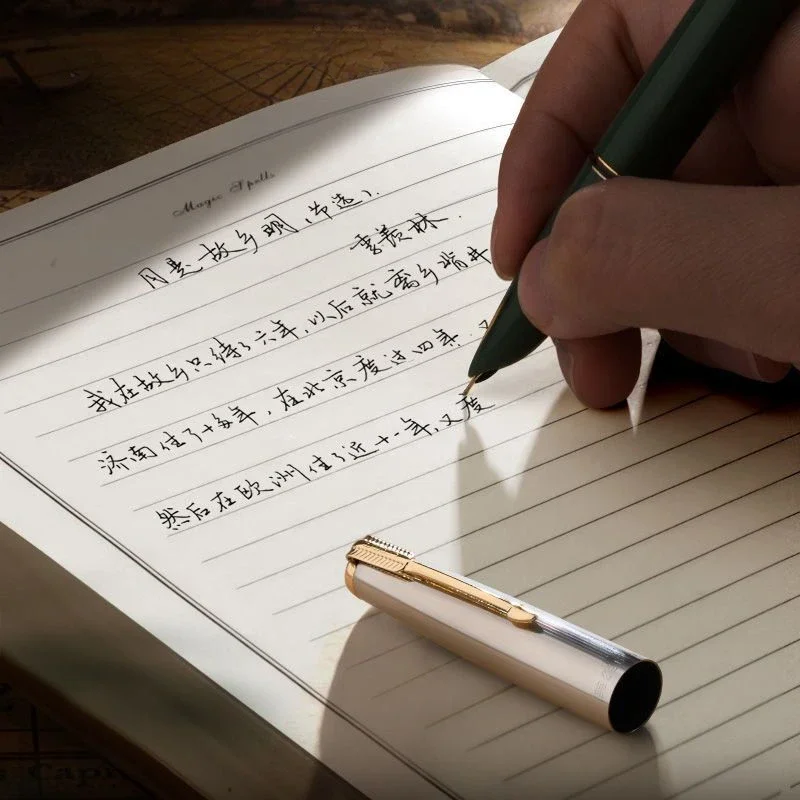 Magic Spells
月是故乡明（节选）.
季羡林.
我在故乡只待了六年，以后就离乡背井
济南住了十多年，在北京度过四年，又
然后在欧洲住了近十一年，又度